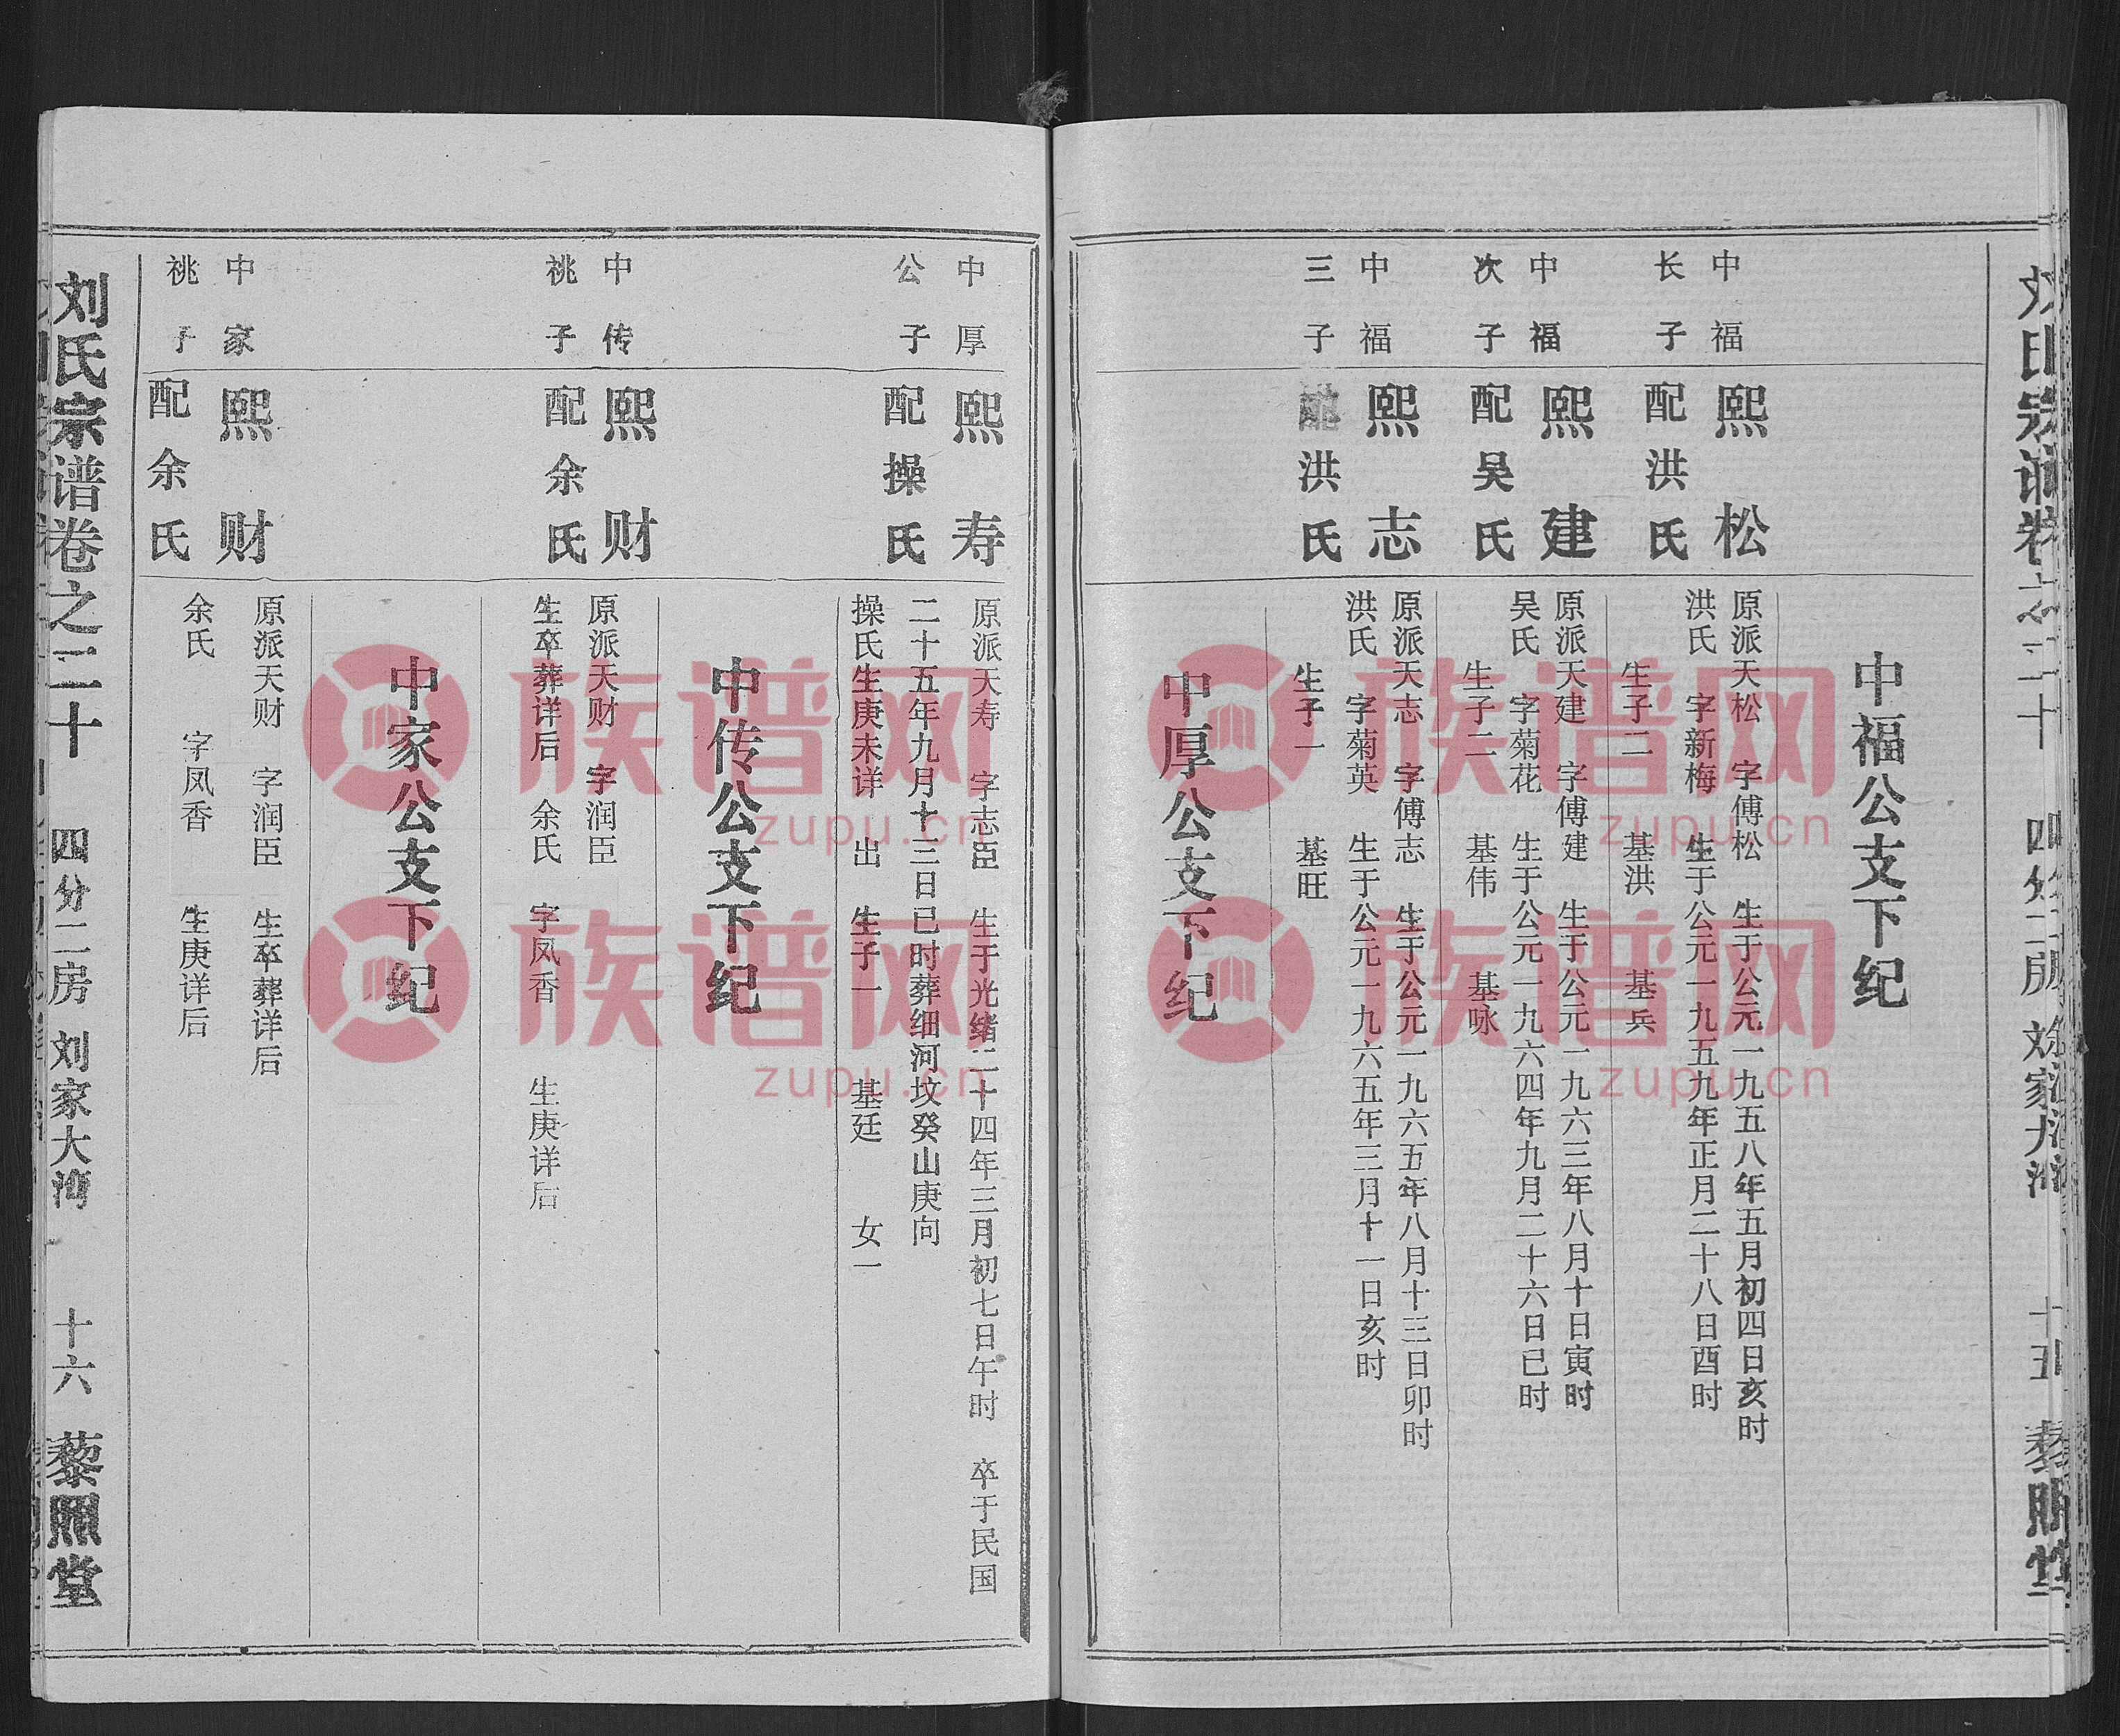 中福公支下纪
中福
长子
熙松
配洪氏
原派天松 字傅松 生于公元一九五八年五月初四日亥时
洪氏 字新梅 生于公元一九五九年正月二十八日酉时
生子二 基洪 基兵
中福
次子
熙建
配吴氏
原派天建 字傅建 生于公元一九六三年八月十日寅时
吴氏 字菊花 生于公元一九六四年九月二十六日巳时
生子二 基伟 基咏
中福
三子
熙志
配洪氏
原派天志 字傅志 生于公元一九六五年八月十三日卯时
洪氏 字菊英 生于公元一九六五年三月十一日亥时
生子一 基旺
中厚公支下纪
中厚
公子
熙寿
配操氏
原派天寿 字志臣 生于光绪二十四年三月初七日午时 卒于民国
二十五年九月十三日巳时葬细河坟癸山庚向
操氏生庚未详 出 生子一 基廷 女一
中传公支下纪
中传
祧子
熙财
配余氏
原派天财 字润臣
生卒葬详后 余氏 字凤香 生庚详后
中家公支下纪
中家
祧子
熙财
配余氏
原派天财 字润臣 生卒葬详后
余氏 字凤香 生庚详后
刘氏宗谱卷之二十 四分二房 刘家大湾 十六 藜照堂
族谱网
zupu.cn
族谱网
zupu.cn
族谱网
zupu.cn
族谱网
zupu.cn